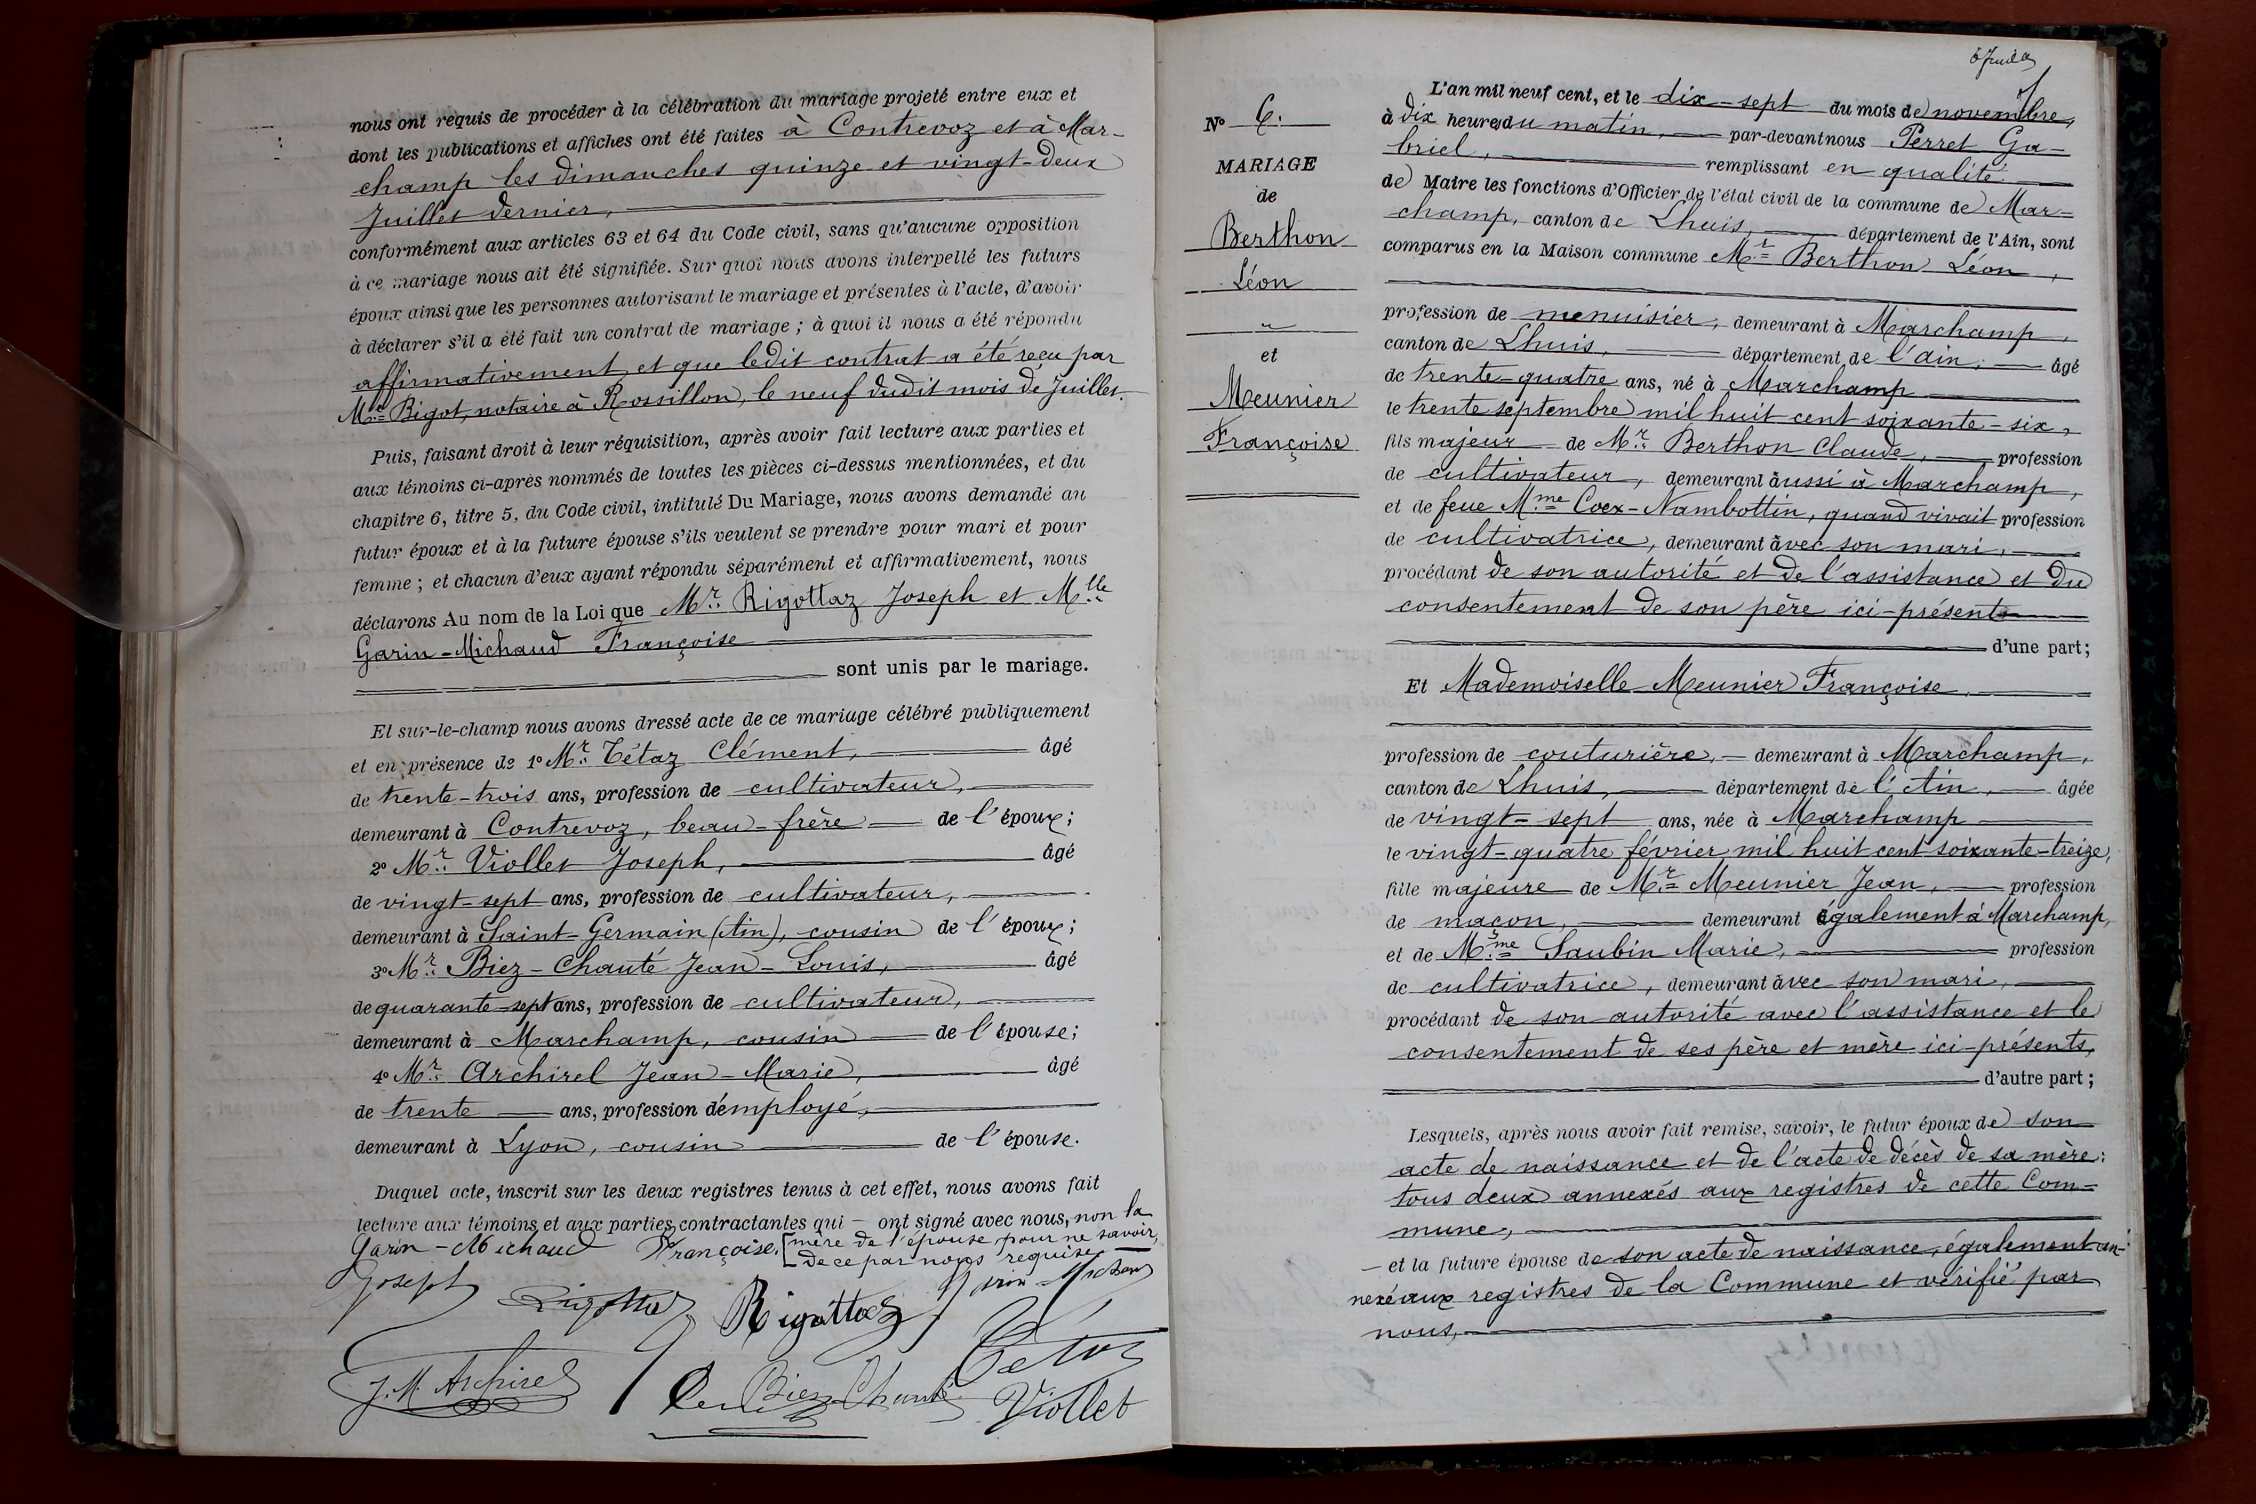 nous ont requis de procéder à la célébration du mariage projeté entre eux et
dont les publications et affiches ont été faites à Contrevoz et à Mar-
champ les dimanches quinze et vingt-deux
Juillet dernier,
conformément aux articles 63 et 64 du Code civil, sans qu'aucune opposition
à ce mariage nous ait été signifiée. Sur quoi nous avons interpellé les futurs
époux ainsi que les personnes autorisant le mariage et présentes à l'acte, d'avoir
à déclarer s'il a été fait un contrat de mariage ; à quoi il nous a été répondu
affirmativement et que ledit contrat a été reçu par
Me Bigot, notaire à Rossillon, le neuf dudit mois de Juillet.
Puis, faisant droit à leur réquisition, après avoir fait lecture aux parties et
aux témoins ci-après nommés de toutes les pièces ci-dessus mentionnées, et du
chapitre 6, titre 5, du Code civil, intitulé Du Mariage, nous avons demandé au
futur époux et à la future épouse s'ils veulent se prendre pour mari et pour
femme ; et chacun d'eux ayant répondu séparément et affirmativement, nous
déclarons Au nom de la Loi que Mr. Rigottaz Joseph et Mlle
Garin-Michaud Françoise
sont unis par le mariage.
Et sur-le-champ nous avons dressé acte de ce mariage célébré publiquement
et en présence de 1º Mr. Tétaz Clément, âgé
de trente-trois ans, profession de cultivateur,
demeurant à Contrevoz, beau-frère de l'époux ;
2º Mr. Viollet Joseph, âgé
de vingt-sept ans, profession de cultivateur,
demeurant à Saint-Germain (Ain), cousin de l'époux ;
3º Mr. Biez-Chanté Jean-Louis, âgé
de quarante-sept ans, profession de cultivateur,
demeurant à Marchamp, cousin de l'épouse ;
4º Mr. Archirel Jean-Marie, âgé
de trente ans, profession d'employé,
demeurant à Lyon, cousin de l'épouse.
Duquel acte, inscrit sur les deux registres tenus à cet effet, nous avons fait
lecture aux témoins et aux parties contractantes qui — ont signé avec nous, non la
mère de l'épouse pour ne savoir,
de ce par nous requise
Garin-Michaud Françoise.
Joseph Rigottaz Rigottaz Garin-Michaud
Tétaz
J. M. Archirel Biez-Chanté Viollet
6 Juillet
Nº 6.
MARIAGE
de
Berthon
Léon
et
Meunier
Françoise
L'an mil neuf cent, et le dix-sept du mois de novembre,
à dix heures du matin, par-devant nous Perret Ga-
briel, remplissant en qualité
de Maire les fonctions d'Officier de l'état civil de la commune de Mar-
champ, canton de Lhuis, département de l'Ain, sont
comparus en la Maison commune Mr Berthon Léon,
profession de menuisier, demeurant à Marchamp,
canton de Lhuis, département de l'ain, âgé
de trente-quatre ans, né à Marchamp
le trente septembre mil huit cent soixante-six,
fils majeur de Mr. Berthon Claude, profession
de cultivateur, demeurant aussi à Marchamp,
et de feue Mme Coex-Nambottin, quand vivait profession
de cultivatrice, demeurant avec son mari,
procédant de son autorité et de l'assistance et du
consentement de son père ici-présent
d'une part ;
Et Mademoiselle Meunier Françoise,
profession de couturière, demeurant à Marchamp,
canton de Lhuis, département de l'Ain, âgée
de vingt-sept ans, née à Marchamp
le vingt-quatre février mil huit cent soixante-treize,
fille majeure de Mr Meunier Jean, profession
de maçon, demeurant également à Marchamp,
et de Mme Saubin Marie, profession
de cultivatrice, demeurant avec son mari,
procédant de son autorité avec l'assistance et le
consentement de ses père et mère ici-présents,
d'autre part ;
Lesquels, après nous avoir fait remise, savoir, le futur époux de son
acte de naissance et de l'acte de décès de sa mère:
tous deux annexés aux registres de cette Com-
mune,
— et la future épouse de son acte de naissance, également an-
nexé aux registres de la Commune et vérifié par
nous,